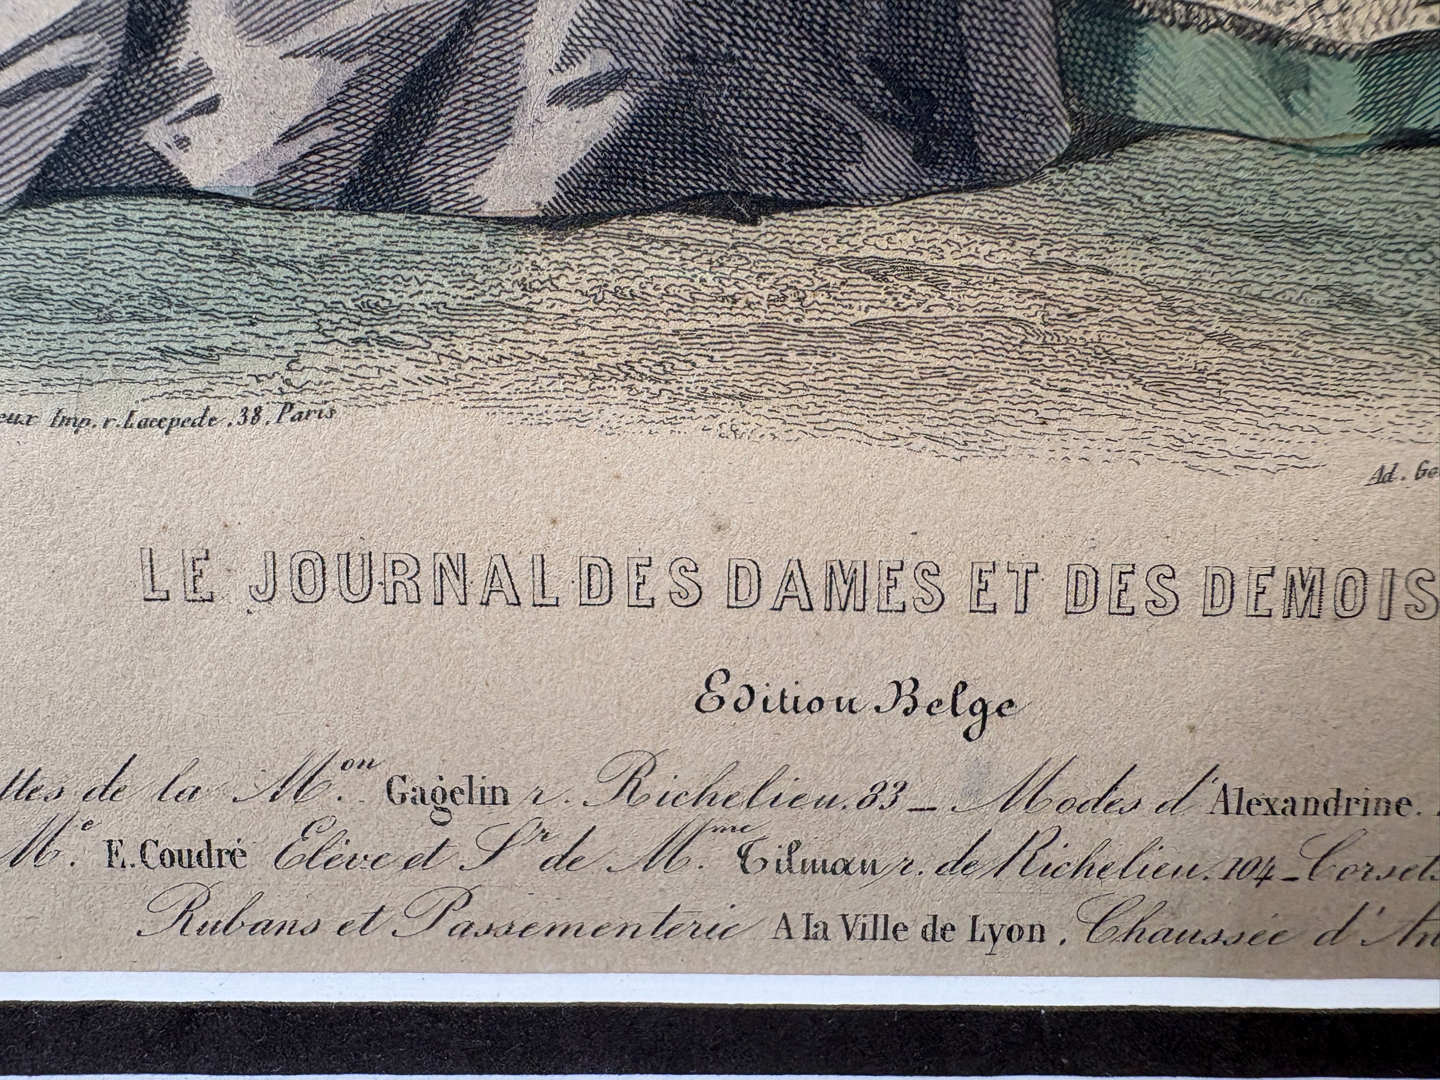 eux Imp. r. Lacepede . 38 . Paris
Ad. Go
LE JOURNAL DES DAMES ET DES DEMOIS
Edition Belge
ttes de la M.on Gagelin r. Richelieu. 83 _ Modes d' Alexandrine.
M.e E. Coudré Elève et S.r de M.me Tilman r. de Richelieu. 104 _ Corsets
Rubans et Passementerie A la Ville de Lyon . Chaussée d' An